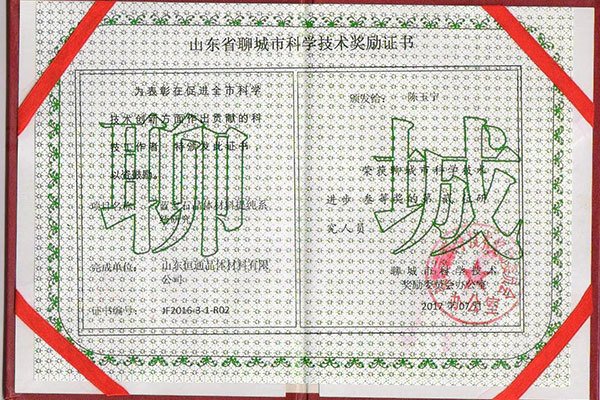 山东省聊城市科学技术奖励证书
为表彰在促进全市科学
技术创新方面作出贡献的科
技工作者，特颁发此证书，
以资鼓励。
项目名称：蓝宝石晶体材料提纯系
统研究
完成单位：山东恒通晶体材料有限
公司
证书编号：JF2016-3-1-R02
聊
颁发给：陈玉宇
荣获聊城市科学技术
进步 叁等奖的第贰位研
究人员
城
聊城市科学技术
奖励委员会办公室
2017年07月
办公室